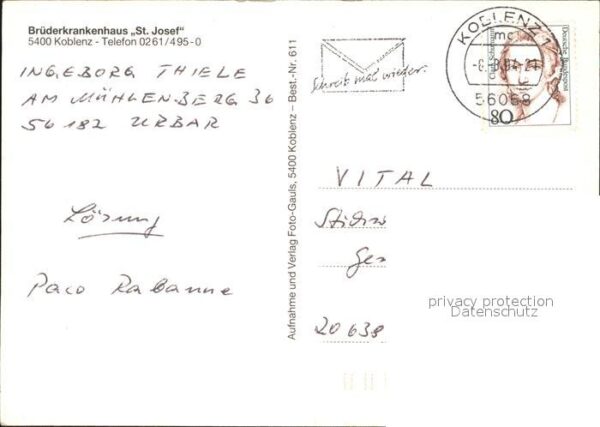 Brüderkrankenhaus „St. Josef"
5400 Koblenz - Telefon 0261/495-0
INGEBORG THIELE
AM MÜHLENBERG 36
56182 URBAR
Lösung
Paco Rabanne
Aufnahme und Verlag Foto-Gauls, 5400 Koblenz – Best.-Nr. 611
Schreib mal wieder.
KOBLENZ 1
mc
56068
Deutsche Bundespost
80
VITAL
Ges
20 638
privacy protection
Datenschutz